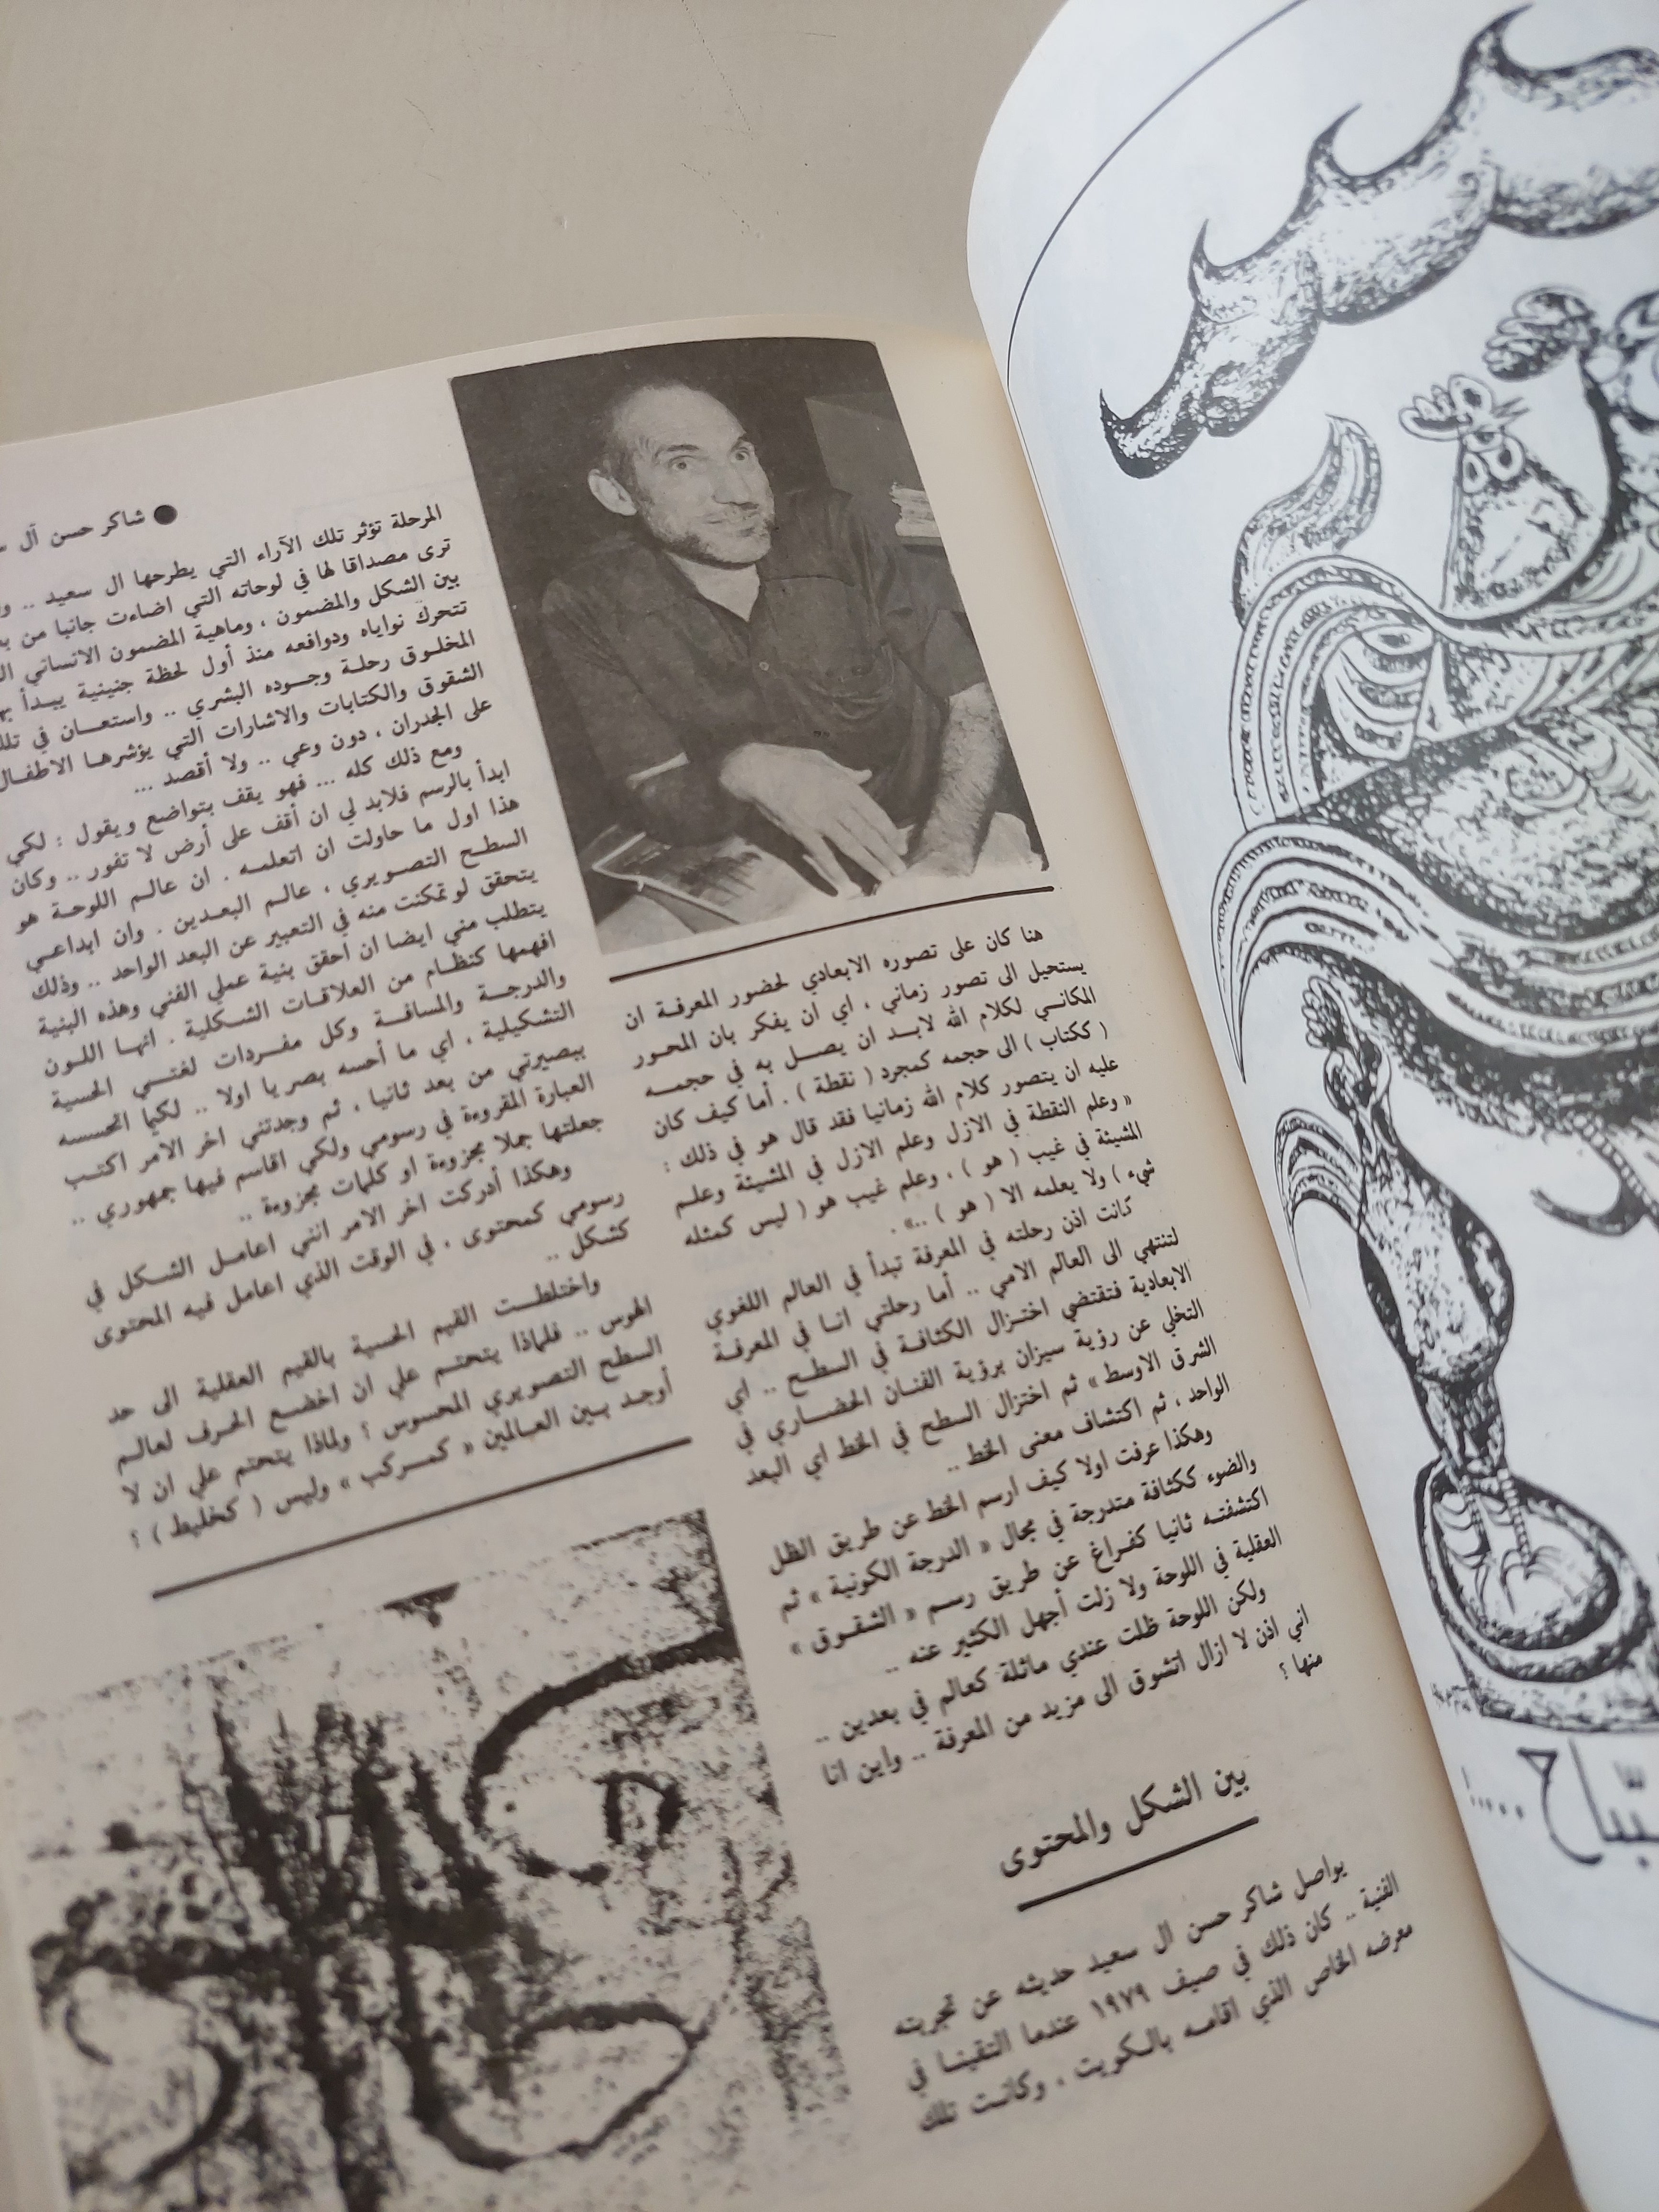 هنا كان على تصوره الابعادي لحضور المعرفة ان
يستحيل الى تصور زماني ، اي ان يفكر بان المحور
المكاني لكلام الله لابد ان يصل به في حجمه
( ككتاب ) الى حجمه كمجرد ( نقطة ) . أما كيف كان
عليه ان يتصور كلام الله زمانيا فقد قال هو في ذلك :
« وعلم النقطة في الازل وعلم الازل في المشيئة وعلم
المشيئة في غيب ( هو ) ، وعلم غيب هو ( ليس كمثله
شيء ) ولا يعلمه الا ( هو ) ..» .
كانت اذن رحلته في المعرفة تبدأ في العالم اللغوي
لتنتهي الى العالم الامي .. أما رحلتي انا في المعرفة
الابعادية فتقتضي اختزال الكثافة في السطح .. اي
التخلي عن رؤية سيزان برؤية الفنان الحضاري في
الشرق الاوسط » ثم اختزال السطح في الخط اي البعد
الواحد ، ثم اكتشاف معنى الخط ..
وهكذا عرفت اولا كيف ارسم الخط عن طريق الظل
والضوء ككثافة متدرجة في مجال « الدرجة الكونية » ثم
اكتشفته ثانيا كفراغ عن طريق رسم « الشقوق »
العقلية في اللوحة ولا زلت أجهل الكثير عنه ..
ولكن اللوحة ظلت عندي ماثلة كعالم في بعدين ..
اني اذن لا ازال اتشوق الى مزيد من المعرفة .. واين انا
منها ؟
بين الشكل والمحتوى
يواصل شاكر حسن ال سعيد حديثه عن تجربته
الفنية .. كان ذلك في صيف ١٩٧٩ عندما التقينا في
معرضه الخاص الذي اقامه بالكويت ، وكانت تلك
● شاكر حسن آل
المرحلة تؤثر تلك الآراء التي يطرحها ال سعيد ..
ترى مصداقا لها في لوحاته التي اضاءت جانبا من
بين الشكل والمضمون ، وماهية المضمون الانساني
تتحرك نواياه ودوافعه منذ أول لحظة جنينية يبدأ
المخلوق رحلة وجوده البشري .. واستعان في تلك
الشقوق والكتابات والاشارات التي يؤشرها الاطفال
على الجدران ، دون وعي .. ولا أقصد ...
ومع ذلك كله ... فهو يقف بتواضع ويقول : لكي
ابدأ بالرسم فلابد لي ان أقف على أرض لا تفور .. وكان
هذا اول ما حاولت ان اتعلمه . ان عالم اللوحة هو
السطح التصويري ، عالم البعدين . وان ابداعي
يتحقق لو تمكنت منه في التعبير عن البعد الواحد .. وذلك
يتطلب مني ايضا ان أحقق بنية عملي الفني وهذه البنية
افهمها كنظام من العلاقات الشكلية . انها اللون
والدرجة والمسافة وكل مفردات لغتي الحسية
التشكيلية ، اي ما أحسه بصريا اولا .. لكيما اتحسسه
ببصيرتي من بعد ثانيا ، ثم وجدتني اخر الامر اكتب
العبارة المقروءة في رسومي ولكي اقاسم فيها جمهوري ..
جعلتها جملا مجزوءة او كلمات مجزوءة ..
وهكذا أدركت اخر الامر انني اعامل الشكل في
رسومي كمحتوى ، في الوقت الذي اعامل فيه المحتوى
كشكل ..
واختلطت القيم الحسية بالقيم العقلية الى حد
الهوس .. فلماذا يتحتم علي ان اخضع الحرف لعالم
السطح التصويري المحسوس ؟ ولماذا يتحتم علي ان لا
أوجد بين العالمين « كمركب » وليس ( كخليط ) ؟